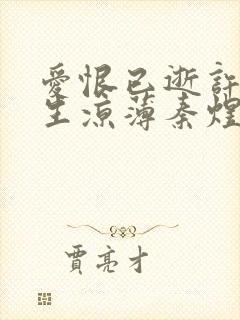 愛恨已逝許
生涼薄秦煌
賈亮才